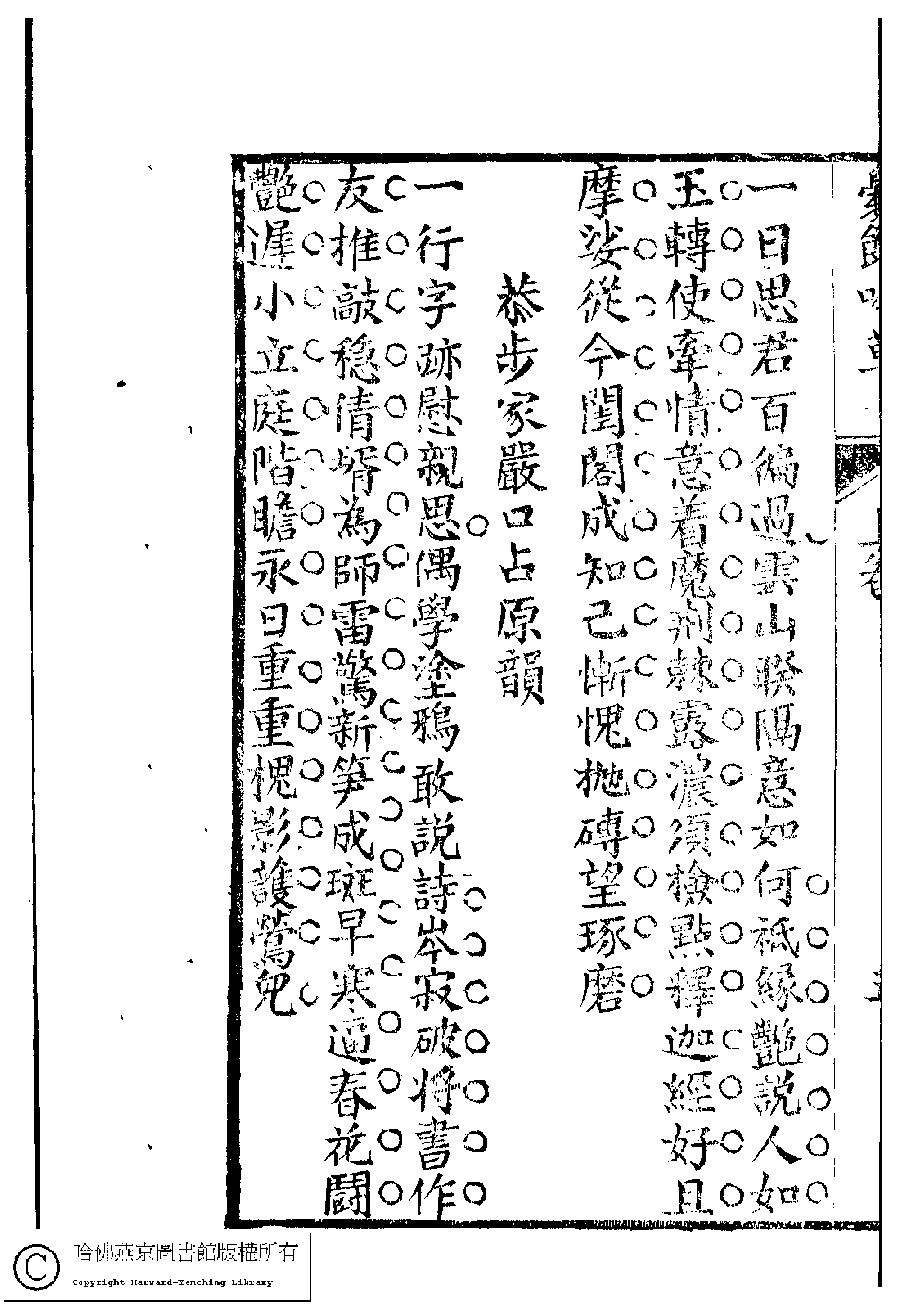 一日思君百徧過雲山暌隔意如何祗緣艷說人如
玉轉使牽情意着魔荆棘露濃須檢點釋迦經好且
摩娑從今閨閣成知己慚愧抛磚望琢磨
恭步家嚴口占原韻
一行字跡慰親思偶學塗鴉敢說詩岑寂破將書作
友推敲穩倩壻為師雷驚新笋成斑早寒逼春花鬭
艷遲小立庭階瞻永日重重槐影護鶯兒
上卷
哈佛燕京圖書館版權所有
Copyright Harvard-Yenching Library